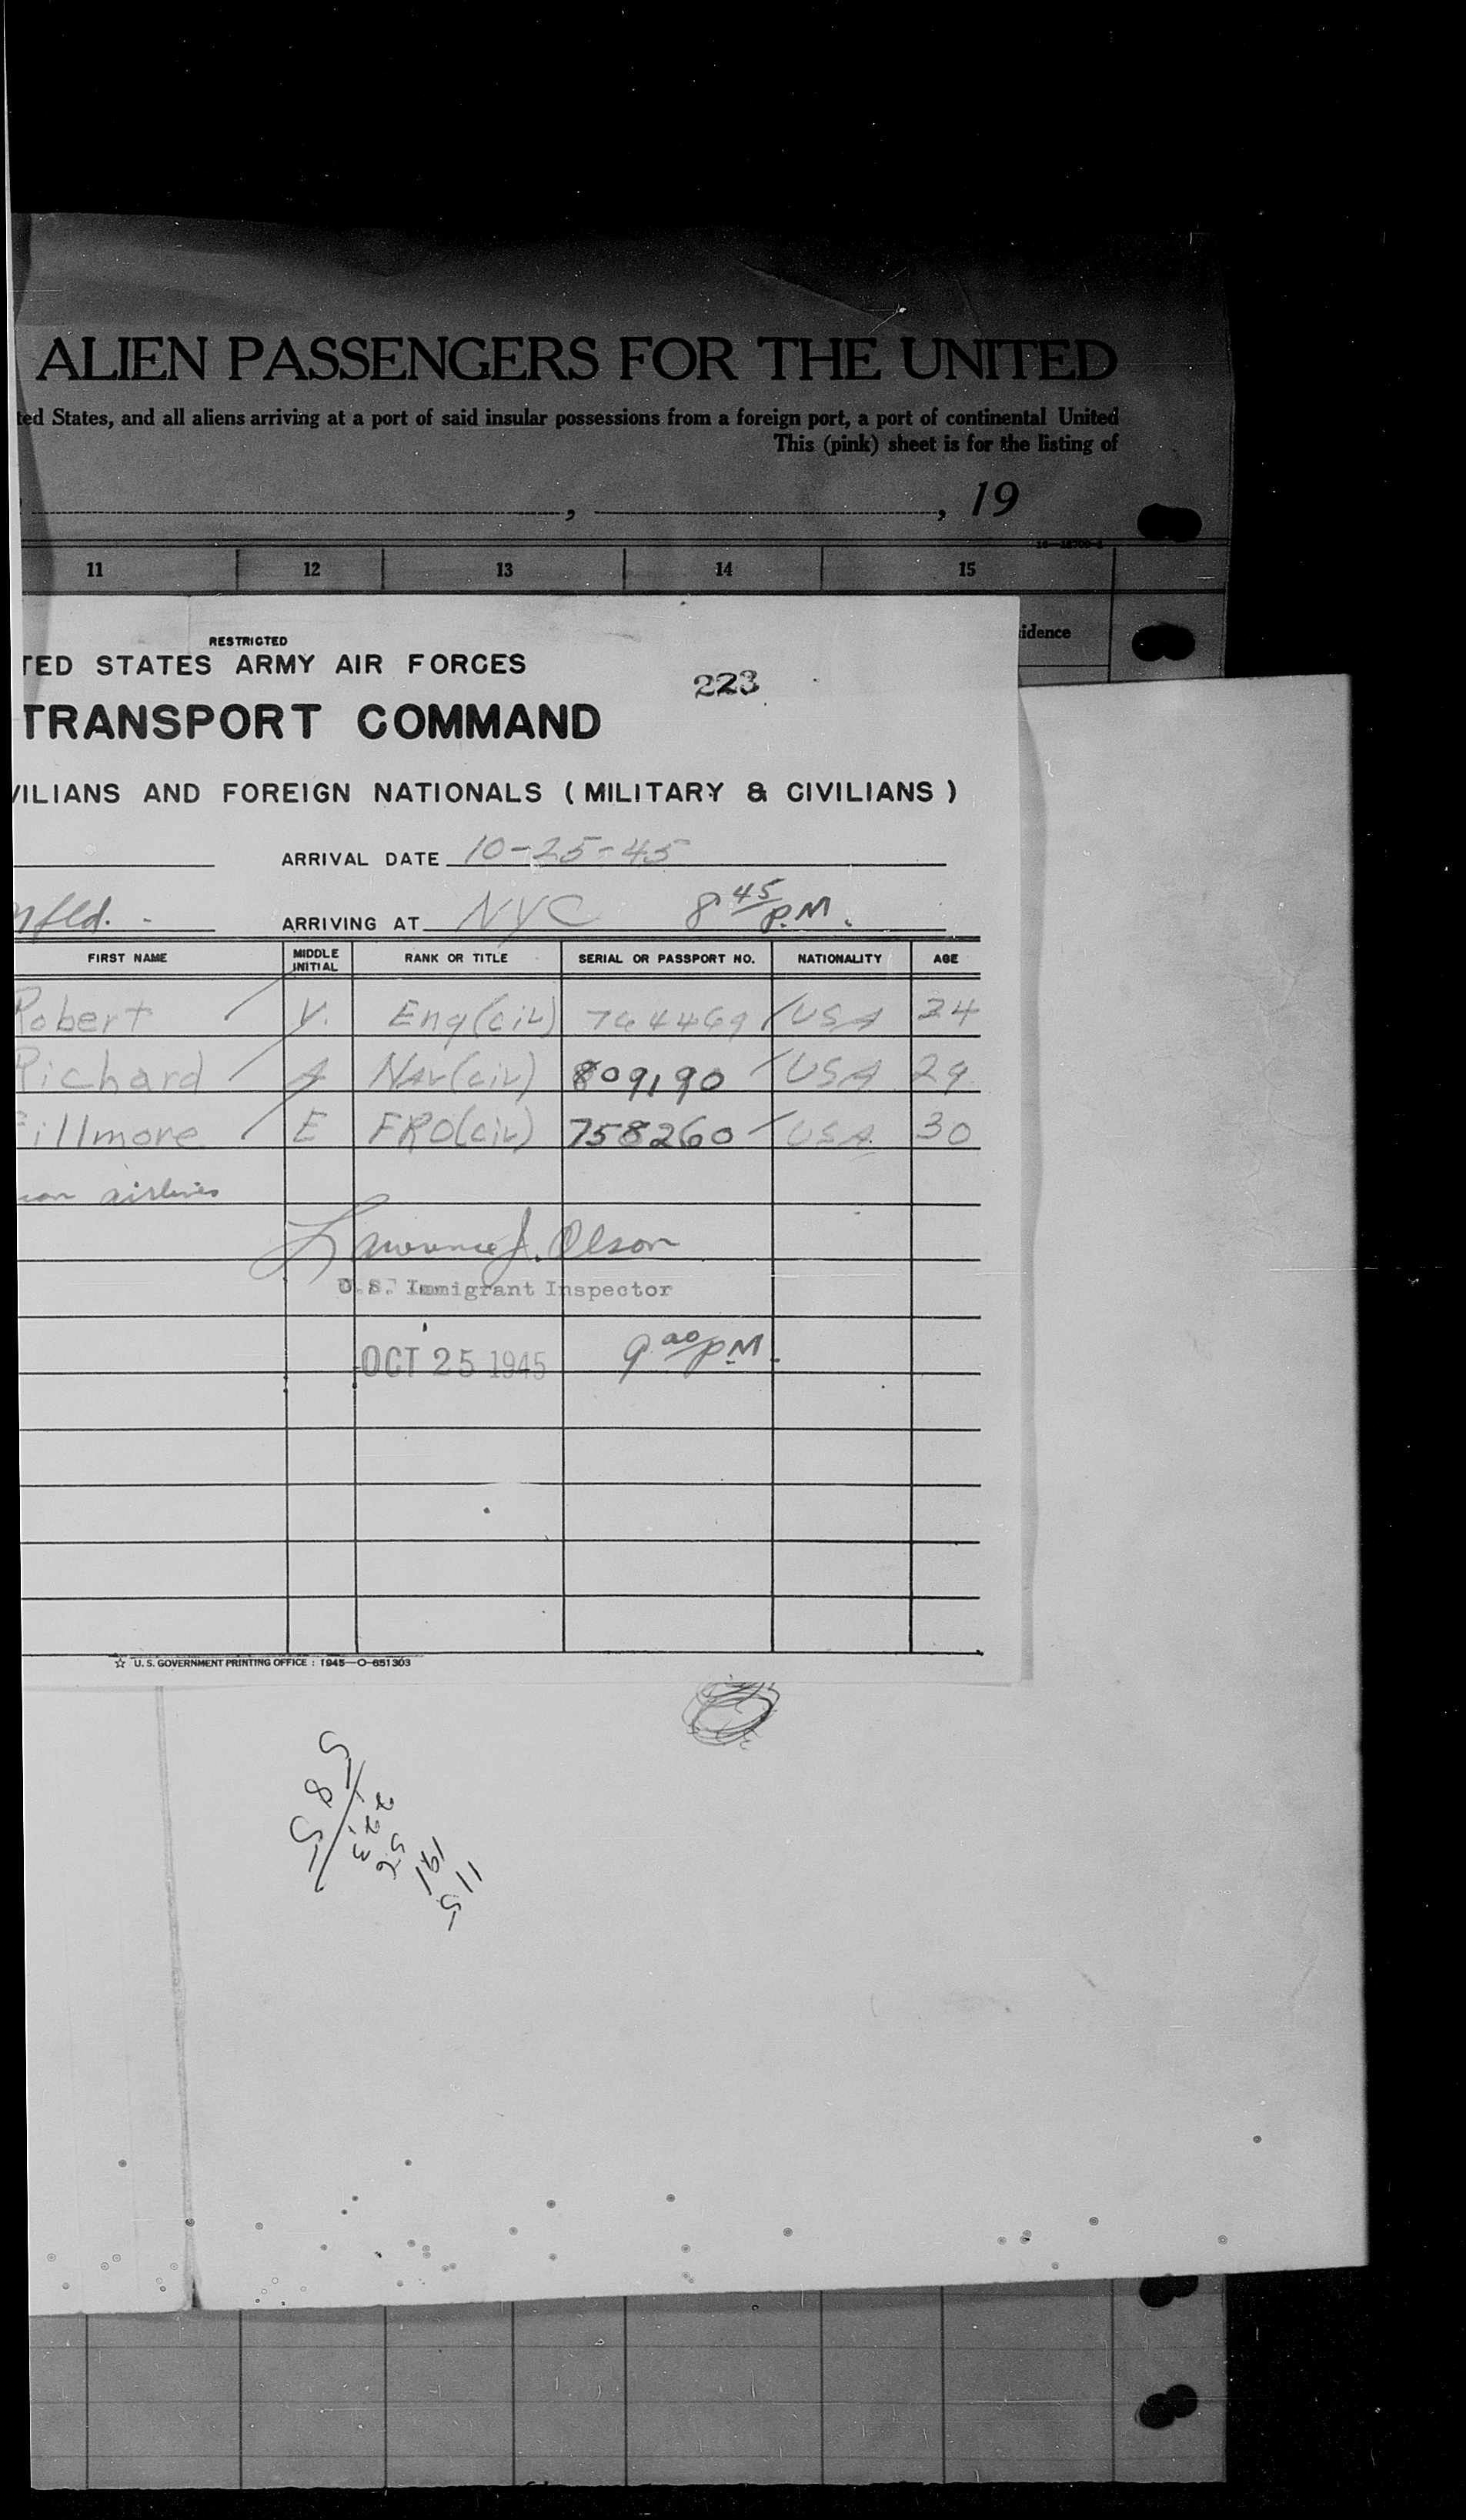 ALIEN PASSENGERS FOR THE UNITED
ted States, and all aliens arriving at a port of said insular possessions from a foreign port, a port of continental United
This (pink) sheet is for the listing of
, , 19
11 12 13 14 15
idence
RESTRICTED
TED STATES ARMY AIR FORCES
223
TRANSPORT COMMAND
VILIANS AND FOREIGN NATIONALS (MILITARY & CIVILIANS)
ARRIVAL DATE 10-25-45
nfld. - ARRIVING AT NYC 8 45 P.M.
FIRST NAME MIDDLE INITIAL RANK OR TITLE SERIAL OR PASSPORT NO. NATIONALITY AGE
Robert V. Eng(civ) 764469 USA 24
Richard A Nav(civ) 809190 USA 29
Fillmore E FRO(civ) 758260 USA 30
can airlines
Lawrence J. Olson
U.S. Immigrant Inspector
OCT 25 1945 9 00 PM.
☆ U. S. GOVERNMENT PRINTING OFFICE : 1945—O-651303
585
223
56
191
115